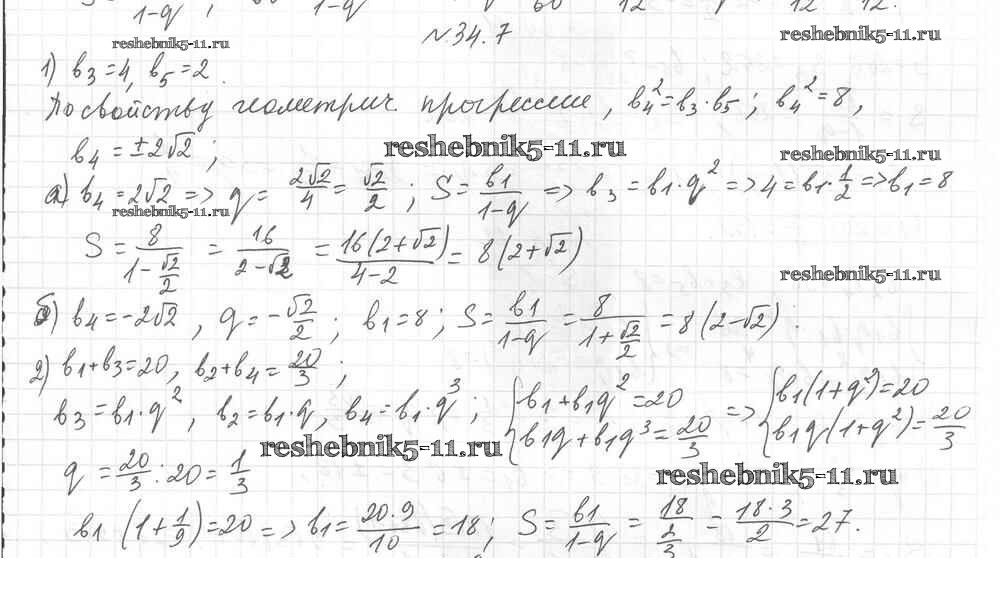 1-q ; 1-q 60 12 12 12.
reshebnik5-11.ru № 34.7 reshebnik5-11.ru
1) b₃=4, b₅=2.
По свойству геометрич. прогрессии, b₄²=b₃·b₅; b₄²=8,
b₄=±2√2; reshebnik5-11.ru reshebnik5-11.ru
а) b₄=2√2 => q= 2√2/4 = √2/2; S= b1/(1-q) => b₃=b₁·q² => 4=b₁·1/2 => b₁=8
reshebnik5-11.ru
S= 8/(1-√2/2) = 16/(2-√2) = 16(2+√2)/(4-2) = 8(2+√2)
reshebnik5-11.ru
б) b₄=-2√2, q=-√2/2; b₁=8; S= b1/(1-q) = 8/(1+√2/2) = 8(2-√2).
2) b₁+b₃=20, b₂+b₄= 20/3;
b₃=b₁·q², b₂=b₁·q, b₄=b₁·q³; { b₁+b₁q²=20 b₁q+b₁q³= 20/3 => { b₁(1+q²)=20 b₁q(1+q²)= 20/3
reshebnik5-11.ru
q = 20/3 : 20 = 1/3
reshebnik5-11.ru
b₁ (1+1/9)=20 => b₁= 20·9/10 =18; S= b1/(1-q) = 18/(2/3) = 18·3/2 =27.